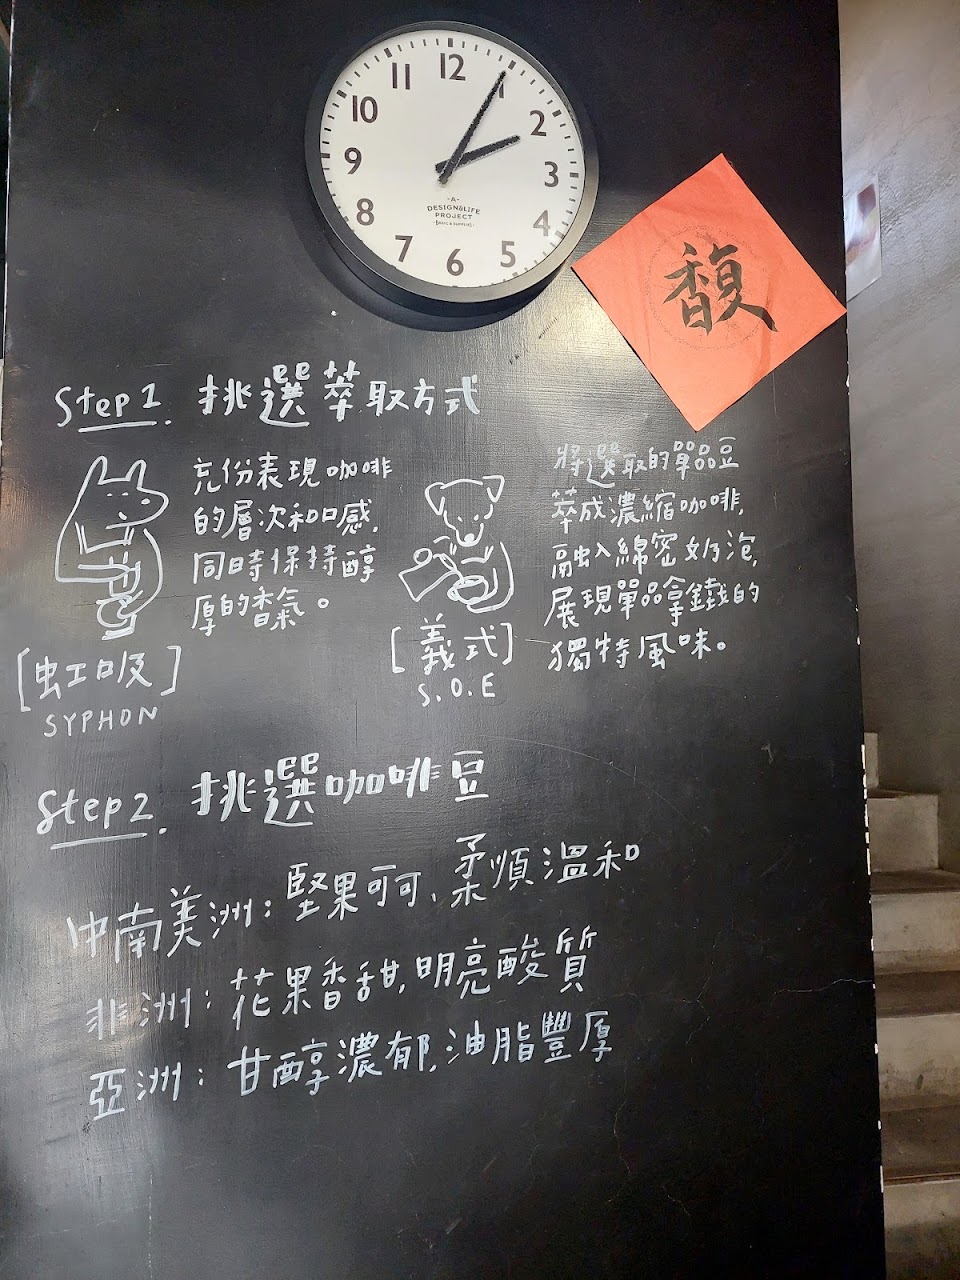 12
1
2
3
4
5
6
7
8
9
10
11
-A-
DESIGN&LIFE
PROJECT
馥
Step1. 挑選萃取方式
充份表現咖啡
的層次和口感,
同時保持醇
厚的香氣。
[虹吸]
SYPHON
將選取的單品豆
萃成濃縮咖啡,
融入綿密奶泡,
展現單品拿鐵的
獨特風味。
[義式]
S.O.E
Step2. 挑選咖啡豆
中南美洲:堅果可可、柔順溫和
非洲:花果香甜,明亮酸質
亞洲:甘醇濃郁,油脂豐厚